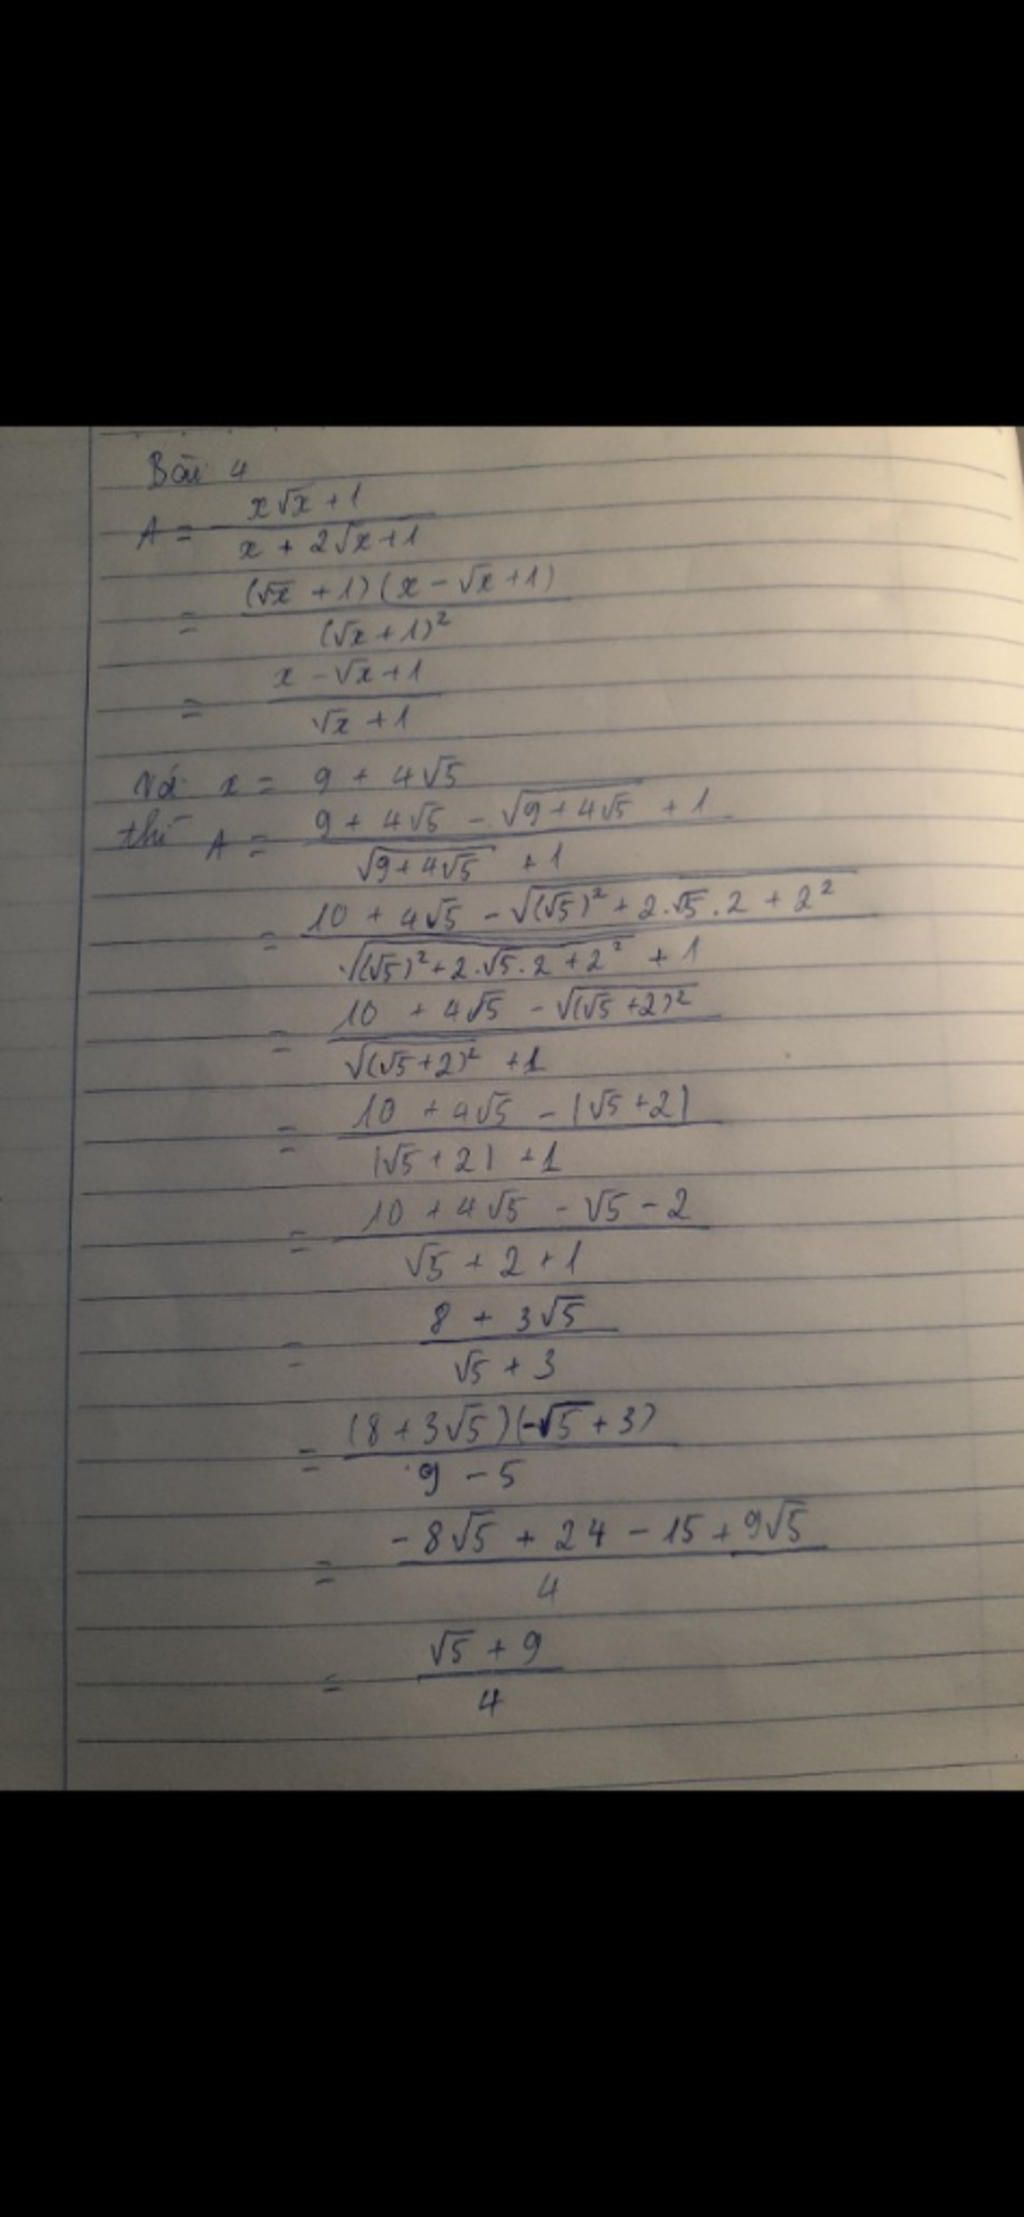 Bài 4
A = (x√x + 1)/(x + 2√x + 1)
= ((√x + 1)(x - √x + 1))/((√x + 1)²)
= (x - √x + 1)/(√x + 1)
Với x = 9 + 4√5
thì A = (9 + 4√5 - √(9 + 4√5) + 1)/(√(9 + 4√5) + 1)
= (10 + 4√5 - √((√5)² + 2.√5.2 + 2²))/(√((√5)² + 2.√5.2 + 2²) + 1)
= (10 + 4√5 - √((√5 + 2)²))/(√((√5 + 2)²) + 1)
= (10 + 4√5 - |√5 + 2|)/(|√5 + 2| + 1)
= (10 + 4√5 - √5 - 2)/(√5 + 2 + 1)
= (8 + 3√5)/(√5 + 3)
= ((8 + 3√5)(-√5 + 3))/(9 - 5)
= (-8√5 + 24 - 15 + 9√5)/4
= (√5 + 9)/4